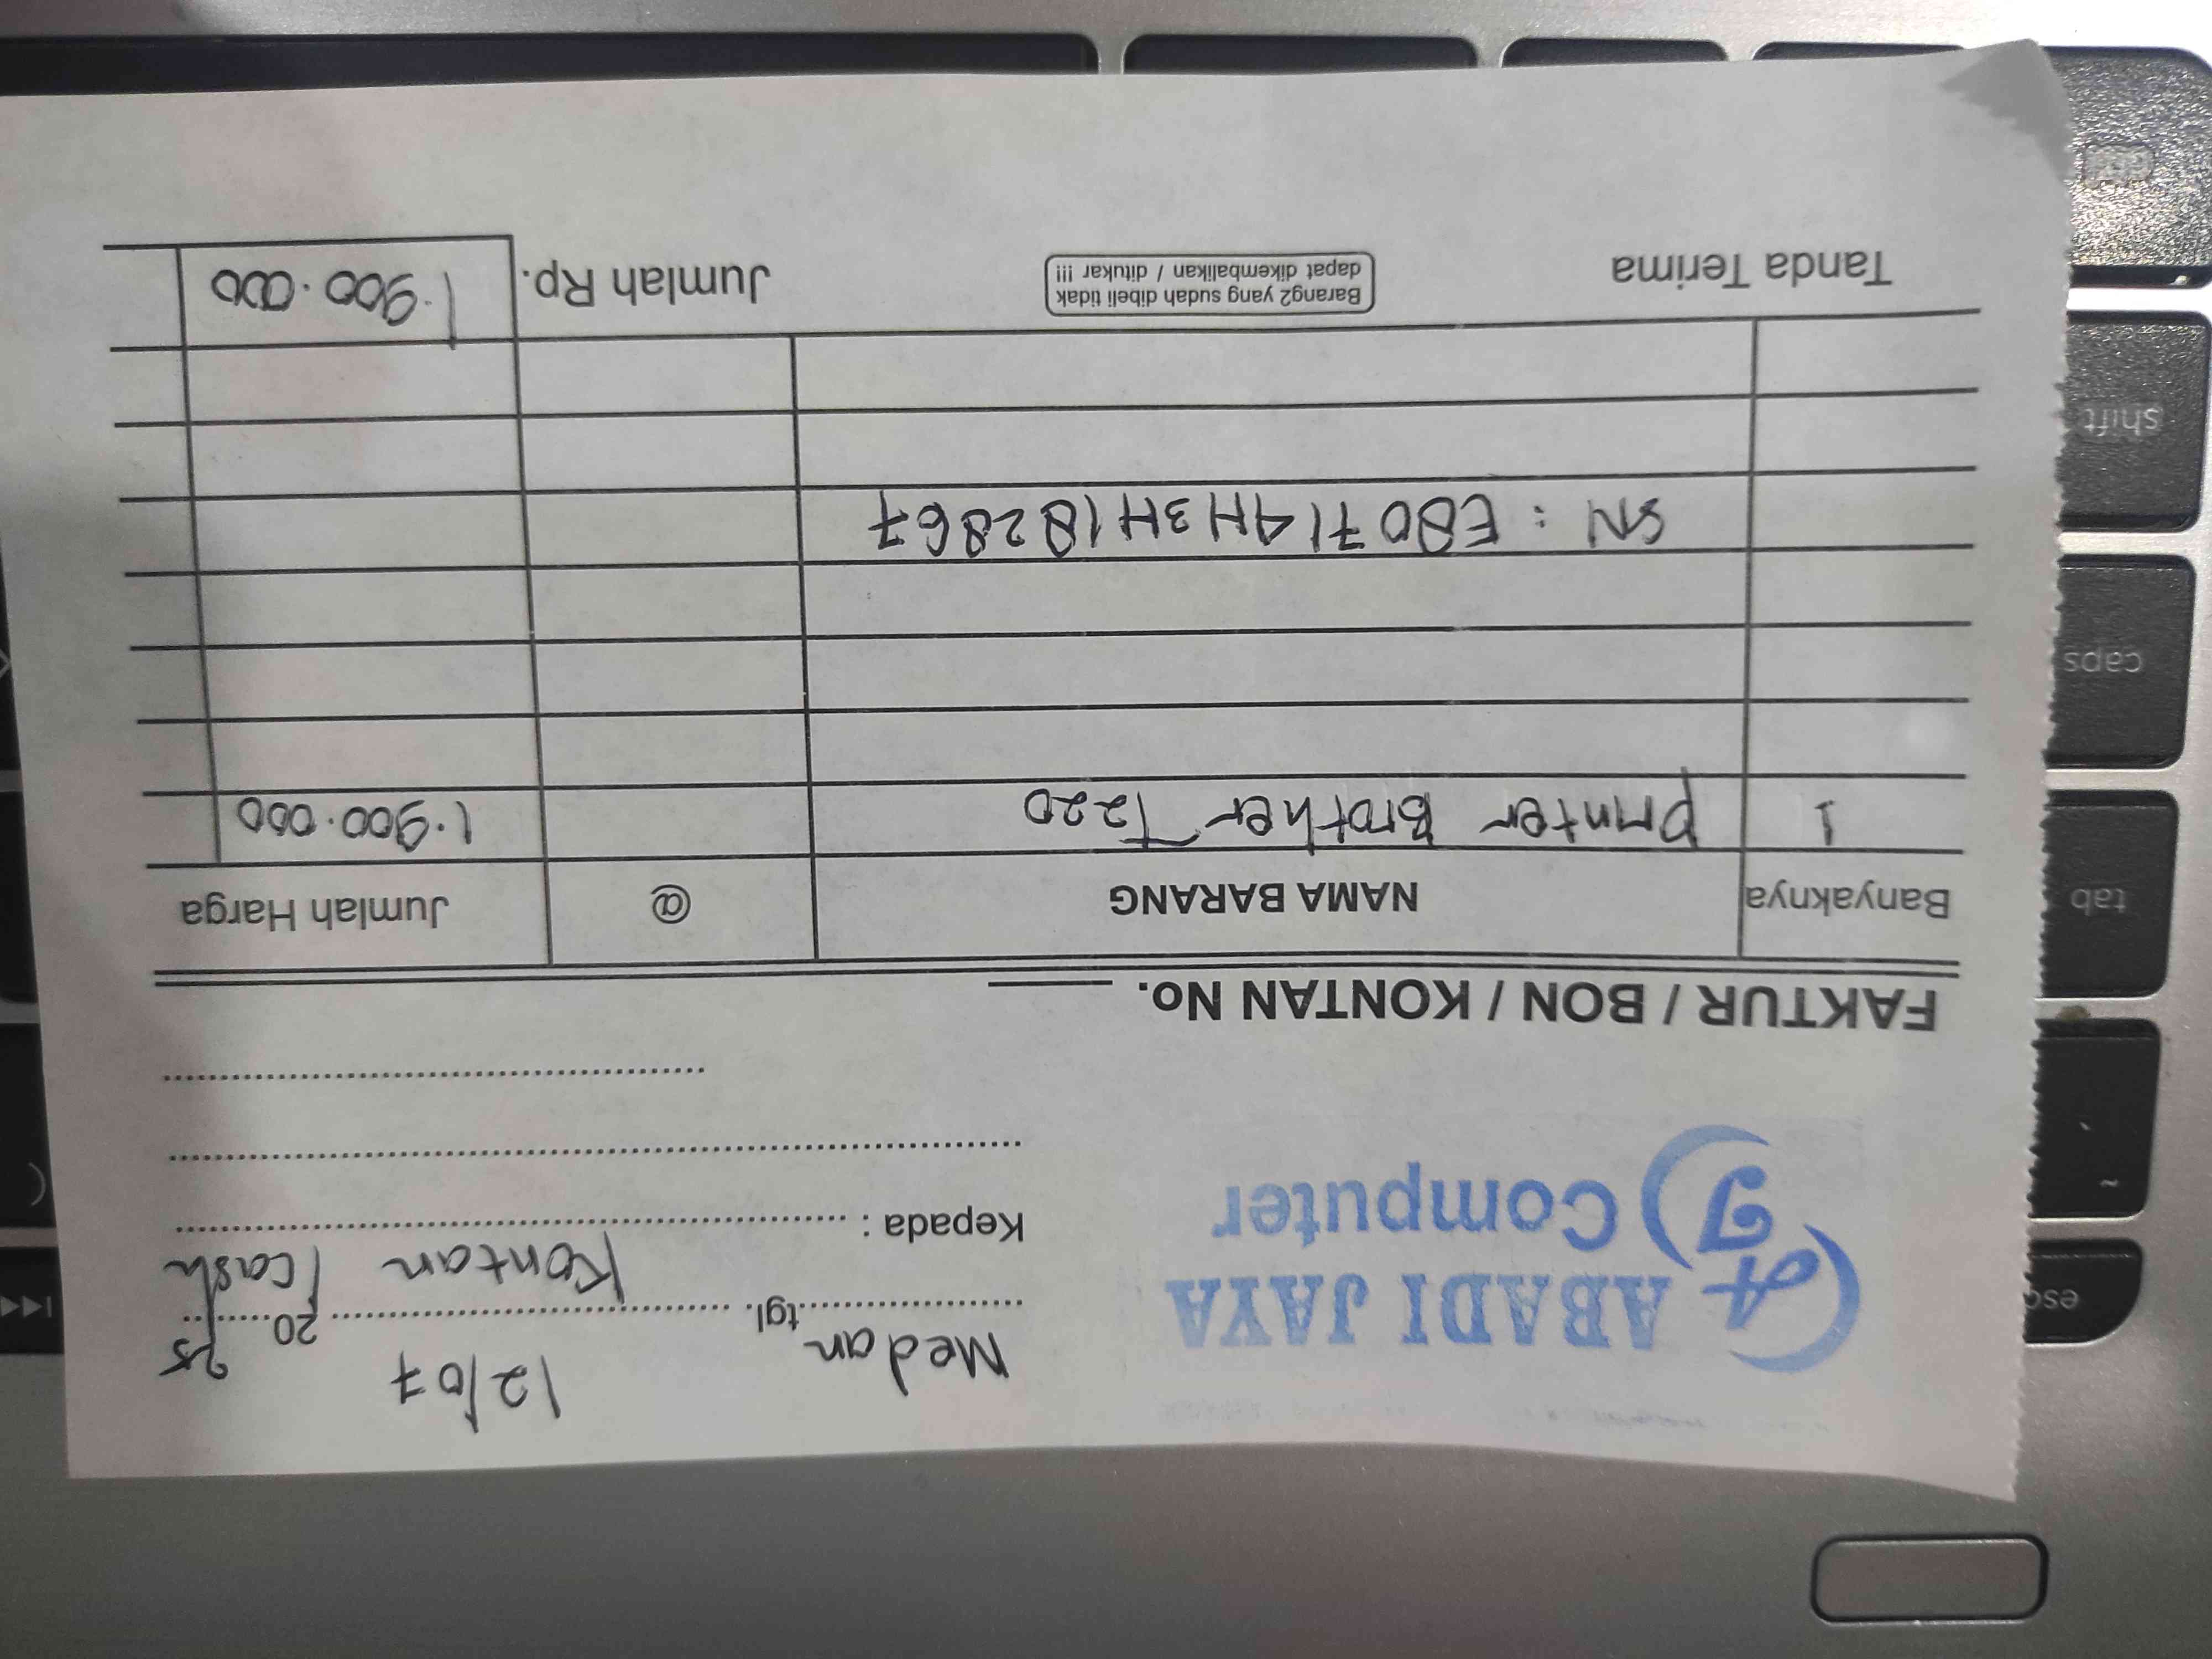 ABADI JAYA
AJ Computer
Medan tgl. 12/07 2025
Kontan / Cash
Kepada :
FAKTUR / BON / KONTAN No.
Banyaknya NAMA BARANG @ Jumlah Harga
1 Printer Brother T220 1.900.000
SN : E80714H3H182867
Tanda Terima
Barang2 yang sudah dibeli tidak
dapat dikembalikan / ditukar !!!
Jumlah Rp. 1.900.000
esc
~
`
tab
caps
shift